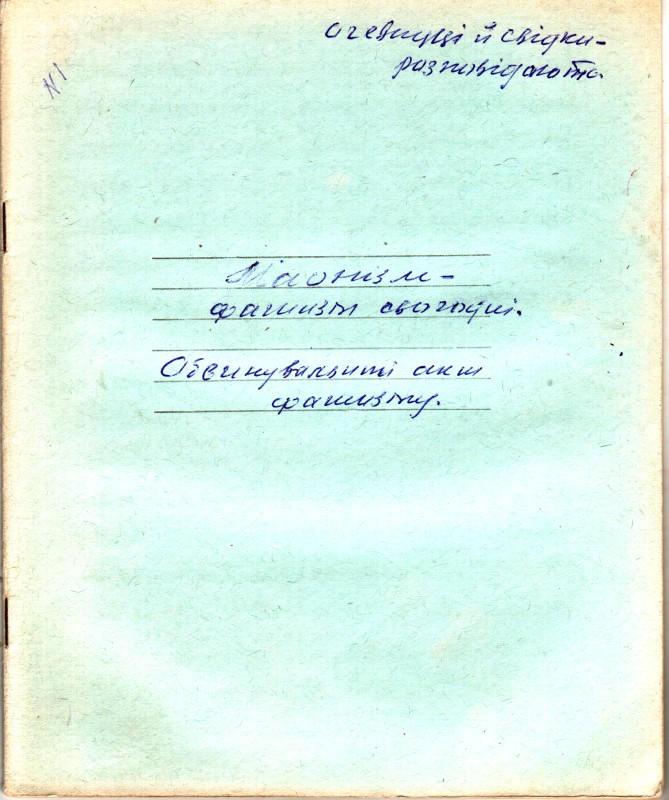 N 1
Очевидці й свідки-
розповідають.
Маонізм-
фашизм сьогодні.
Обвинувальний акт
фашизму.